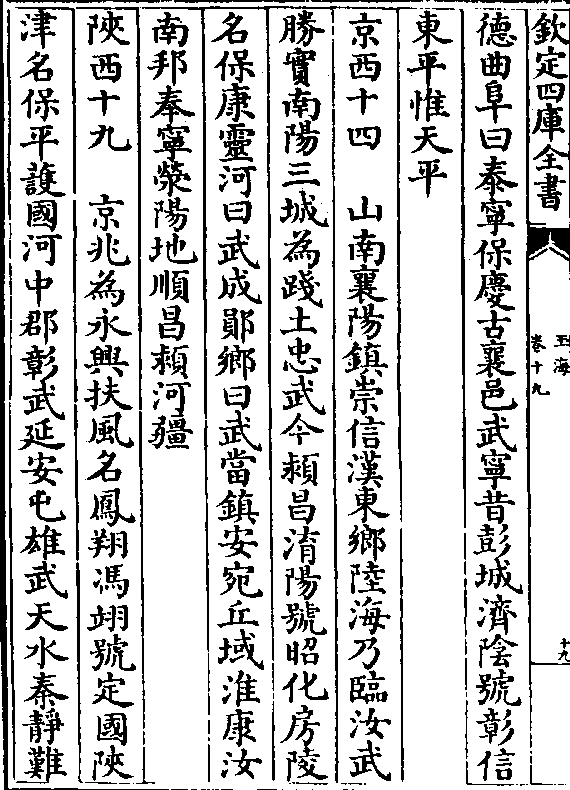 欽定四庫全書
玉海
卷十九
十九
德曲阜曰泰寧保慶古襄邑武寧昔彭城濟陰號彰信
東平惟天平
京西十四　山南襄陽鎮崇信漢東鄉陸海乃臨汝武
勝實南陽三城為踐土忠武今頼昌淯陽號昭化房陵
名保康靈河曰武成鄖鄉曰武當鎮安宛丘域淮康汝
南邦奉寧滎陽地順昌頼河疆
陜西十九　京兆為永興扶風名鳳翔馮翊號定國陜
津名保平護國河中郡彰武延安屯雄武天水秦靜難